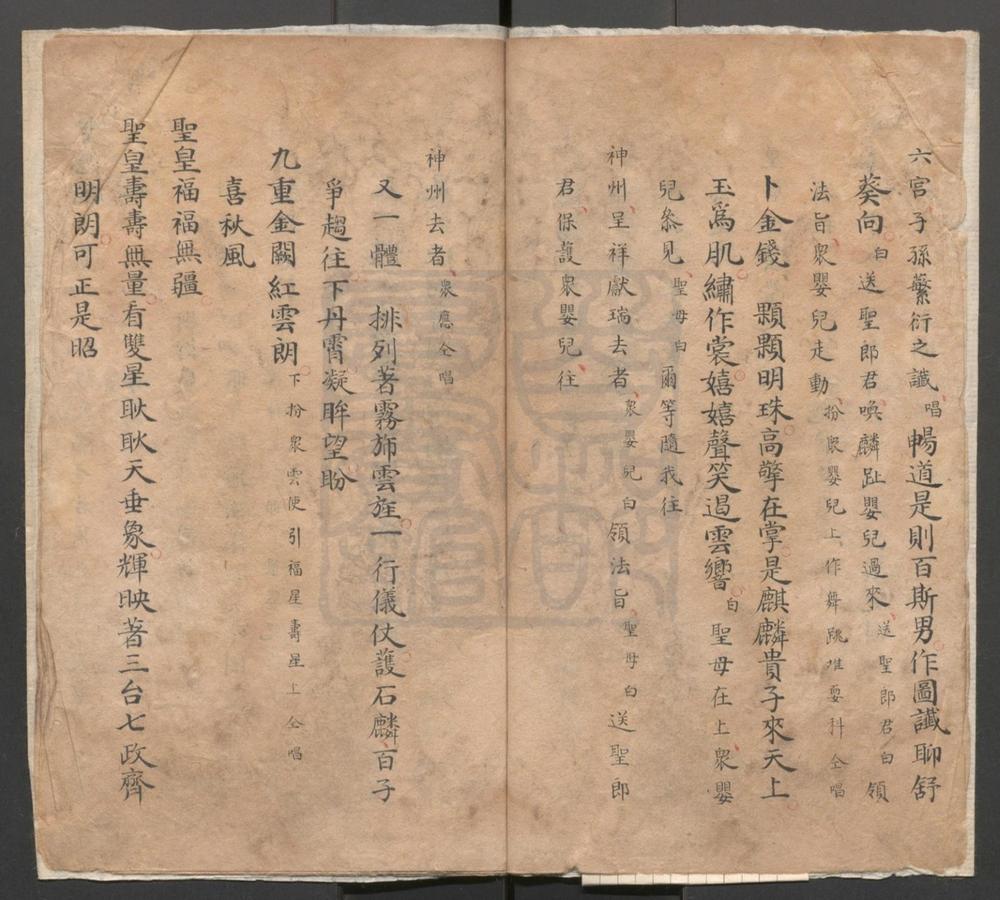 六宮子孫蘩衍之讖唱暢道是則百斯男作圖讖聊舒
葵向白送聖郎君喚麟趾嬰兒過來送聖郎君白領
法旨衆嬰兒走動扮衆嬰兒上作舞跳堆耍科仝唱
卜金錢　顆顆明珠高擎在掌是麒麟貴子來天上
玉爲肌繡作裳嬉嬉聲笑遏雲響白聖母在上衆嬰
兒叅見聖母白爾等隨我往
神州呈祥獻瑞去者衆嬰兒白領法旨聖母白送聖郎
君保護衆嬰兒往
神州去者衆應仝唱
又一體　排列著霧斾雲旌一行儀仗護石麟百子
爭趨往下丹霄凝眸望盼
九重金闕紅雲朗下扮衆雲使引福星壽星上仝唱
喜秋風
聖皇福福無疆
聖皇壽壽無量看雙星耿耿天垂象輝映著三台七政齊
明朗可正是昭